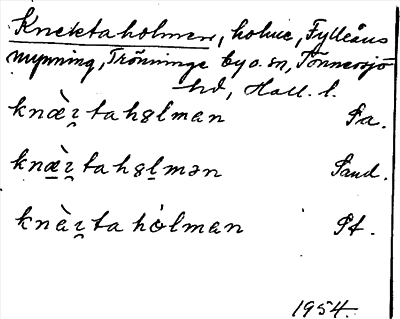 Knektaholmen, holme, Fylleåns
mynning, Trönninge by o. sn, Tönnersjö
hd, Hall. l.
knæ̀ɪ̯tahɞlman Pa.
knæ̀ɪ̯tahɞlmən Sand.
knàɪ̯tahòlman St.
1954.